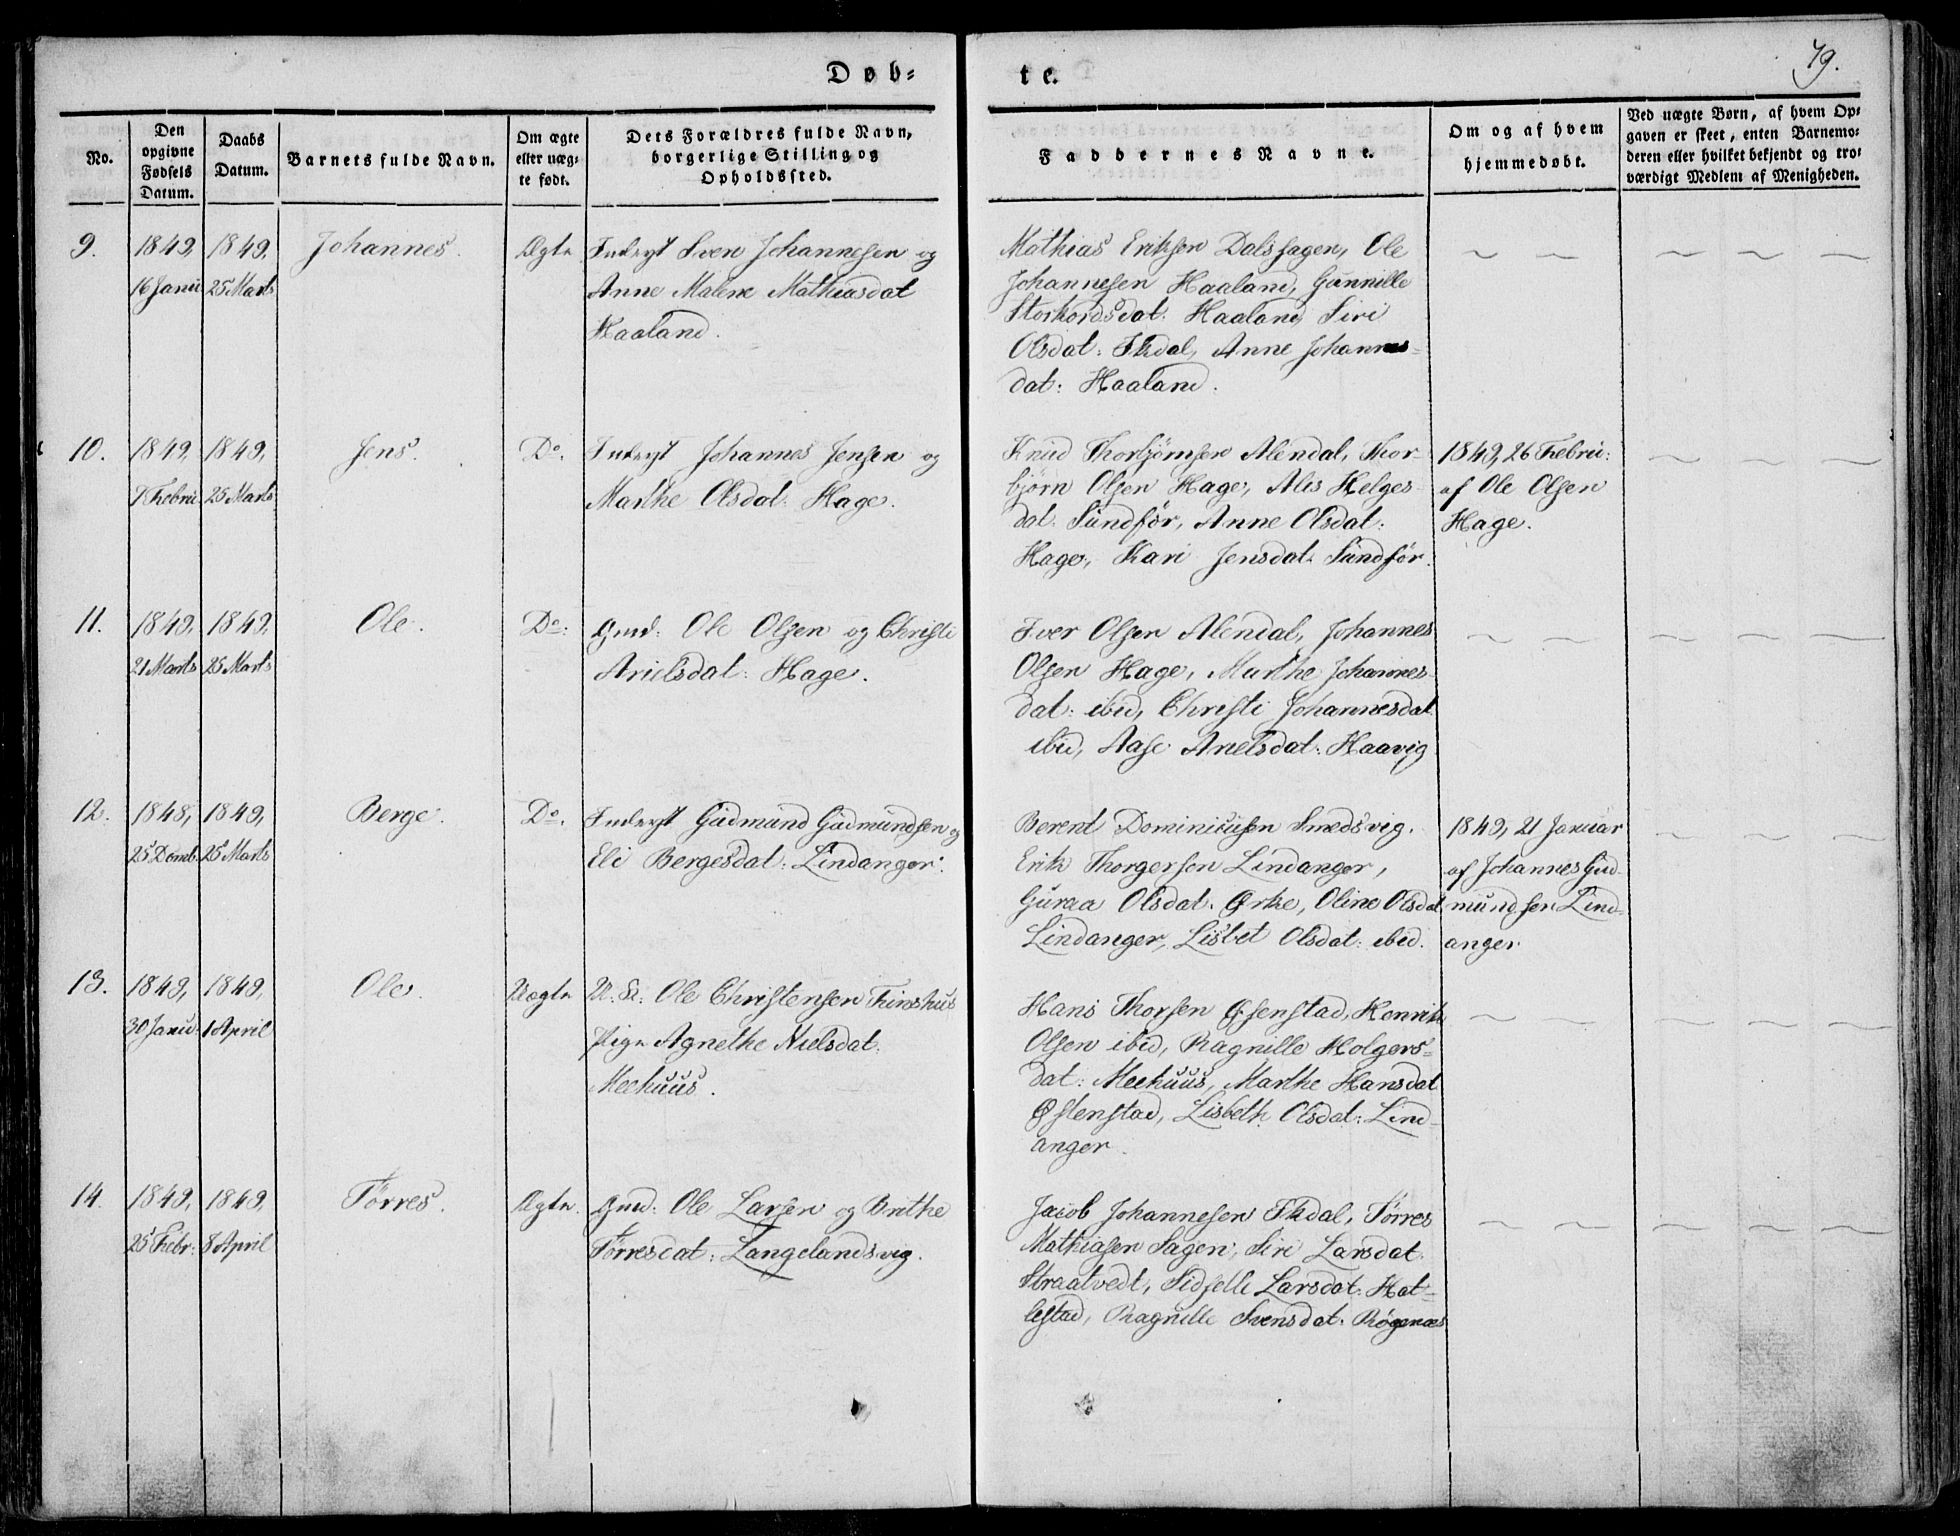 Døb-
te.
79.
No.
Den
opgivne
Fødsels
Datum.
Daabs
Datum.
Barnets fulde Navn.
Om ægte
eller uæg-
te født.
Dets Forældres fulde Navn,
borgerlige Stilling og
Opholdssted.
Faddernes Navne.
Om og af hvem
hjemmedøbt.
Ved uægte Børn, af hvem Op-
gaven er skeet, enten Barnemo-
deren eller hvilket bekjendt og tro-
værdigt Medlem af Menigheden.
9.
1849,
16 Janu
1849,
25 Marts
Johannes.
Ægte
Inderst Sven Johannesen og
Anne Malene Mathiasdat
Haaland.
Mathias Eriksen Dalssagen, Ole
Johannesen Haaland, Gunnille
Storkordsdat: Haaland, Siri
Olsdat: Ekdal, Anne Johannes-
dat: Haaland.
10.
1849,
7 Febru
1849,
25 Marts
Jens.
Do.
Inderst Johannes Jensen og
Marthe Olsdat: Hage.
Knud Thorbjørnsen Alendal, Thor-
bjørn Olsen Hage, Alis Helges-
dat: Sundfør, Anne Olsdat:
Hage, Kari Jensdat: Sundfør.
1849, 26 Febru:
af Ole Olsen
Hage.
11.
1849,
21 Marts
1849,
25 Marts
Ole.
Do:
Gmd: Ole Olsen og Christi
Arielsdat: Hage.
Iver Olsen Alendal, Johannes
Olsen Hage, Marthe Johannes-
dat: ibid, Christi Johannesdat
ibid, Aase Anelsdat: Haavig
12.
1848,
25 Decmb.
1849,
25 Marts
Berge.
Do.
Inderst Gudmund Gudmundsen og
Eli Bergesdat: Lindanger.
Berent Dominicusen Smedsvig.
Erik Thorgersen Lindanger,
Guraa Olsdat. Ørke, Oline Olsdat
Lindanger, Lisbet Olsdat: ibid.
1849, 21 Januar
af Johannes Gud-
mundsen Lind-
anger
13.
1849,
30 Janu.
1849,
1 April
Ole.
Uægte
U. K: Ole Christensen
Pige Agnethe Nielsdat.
Meehuus.
Hans Thorsen Østenstad, Henrik
Olsen ibid, Ragnille Holgers-
dat: Meehuus, Marthe Hansdat
Østenstad, Lisbeth Olsdat: Lind-
anger.
14.
1849,
25 Febr:
1849,
8 April
Tørres.
Ægte.
Gmd: Ole Larsen og Brithe
Tørresdat: Langelandsvig.
Jacob Johannesen Ekdal, Tørres
Mathiasen Sagen, Siri Larsdat.
Straatvedt, Sidselle Larsdat: Hat-
lestad, Ragnille Svensdat: Røgenæs